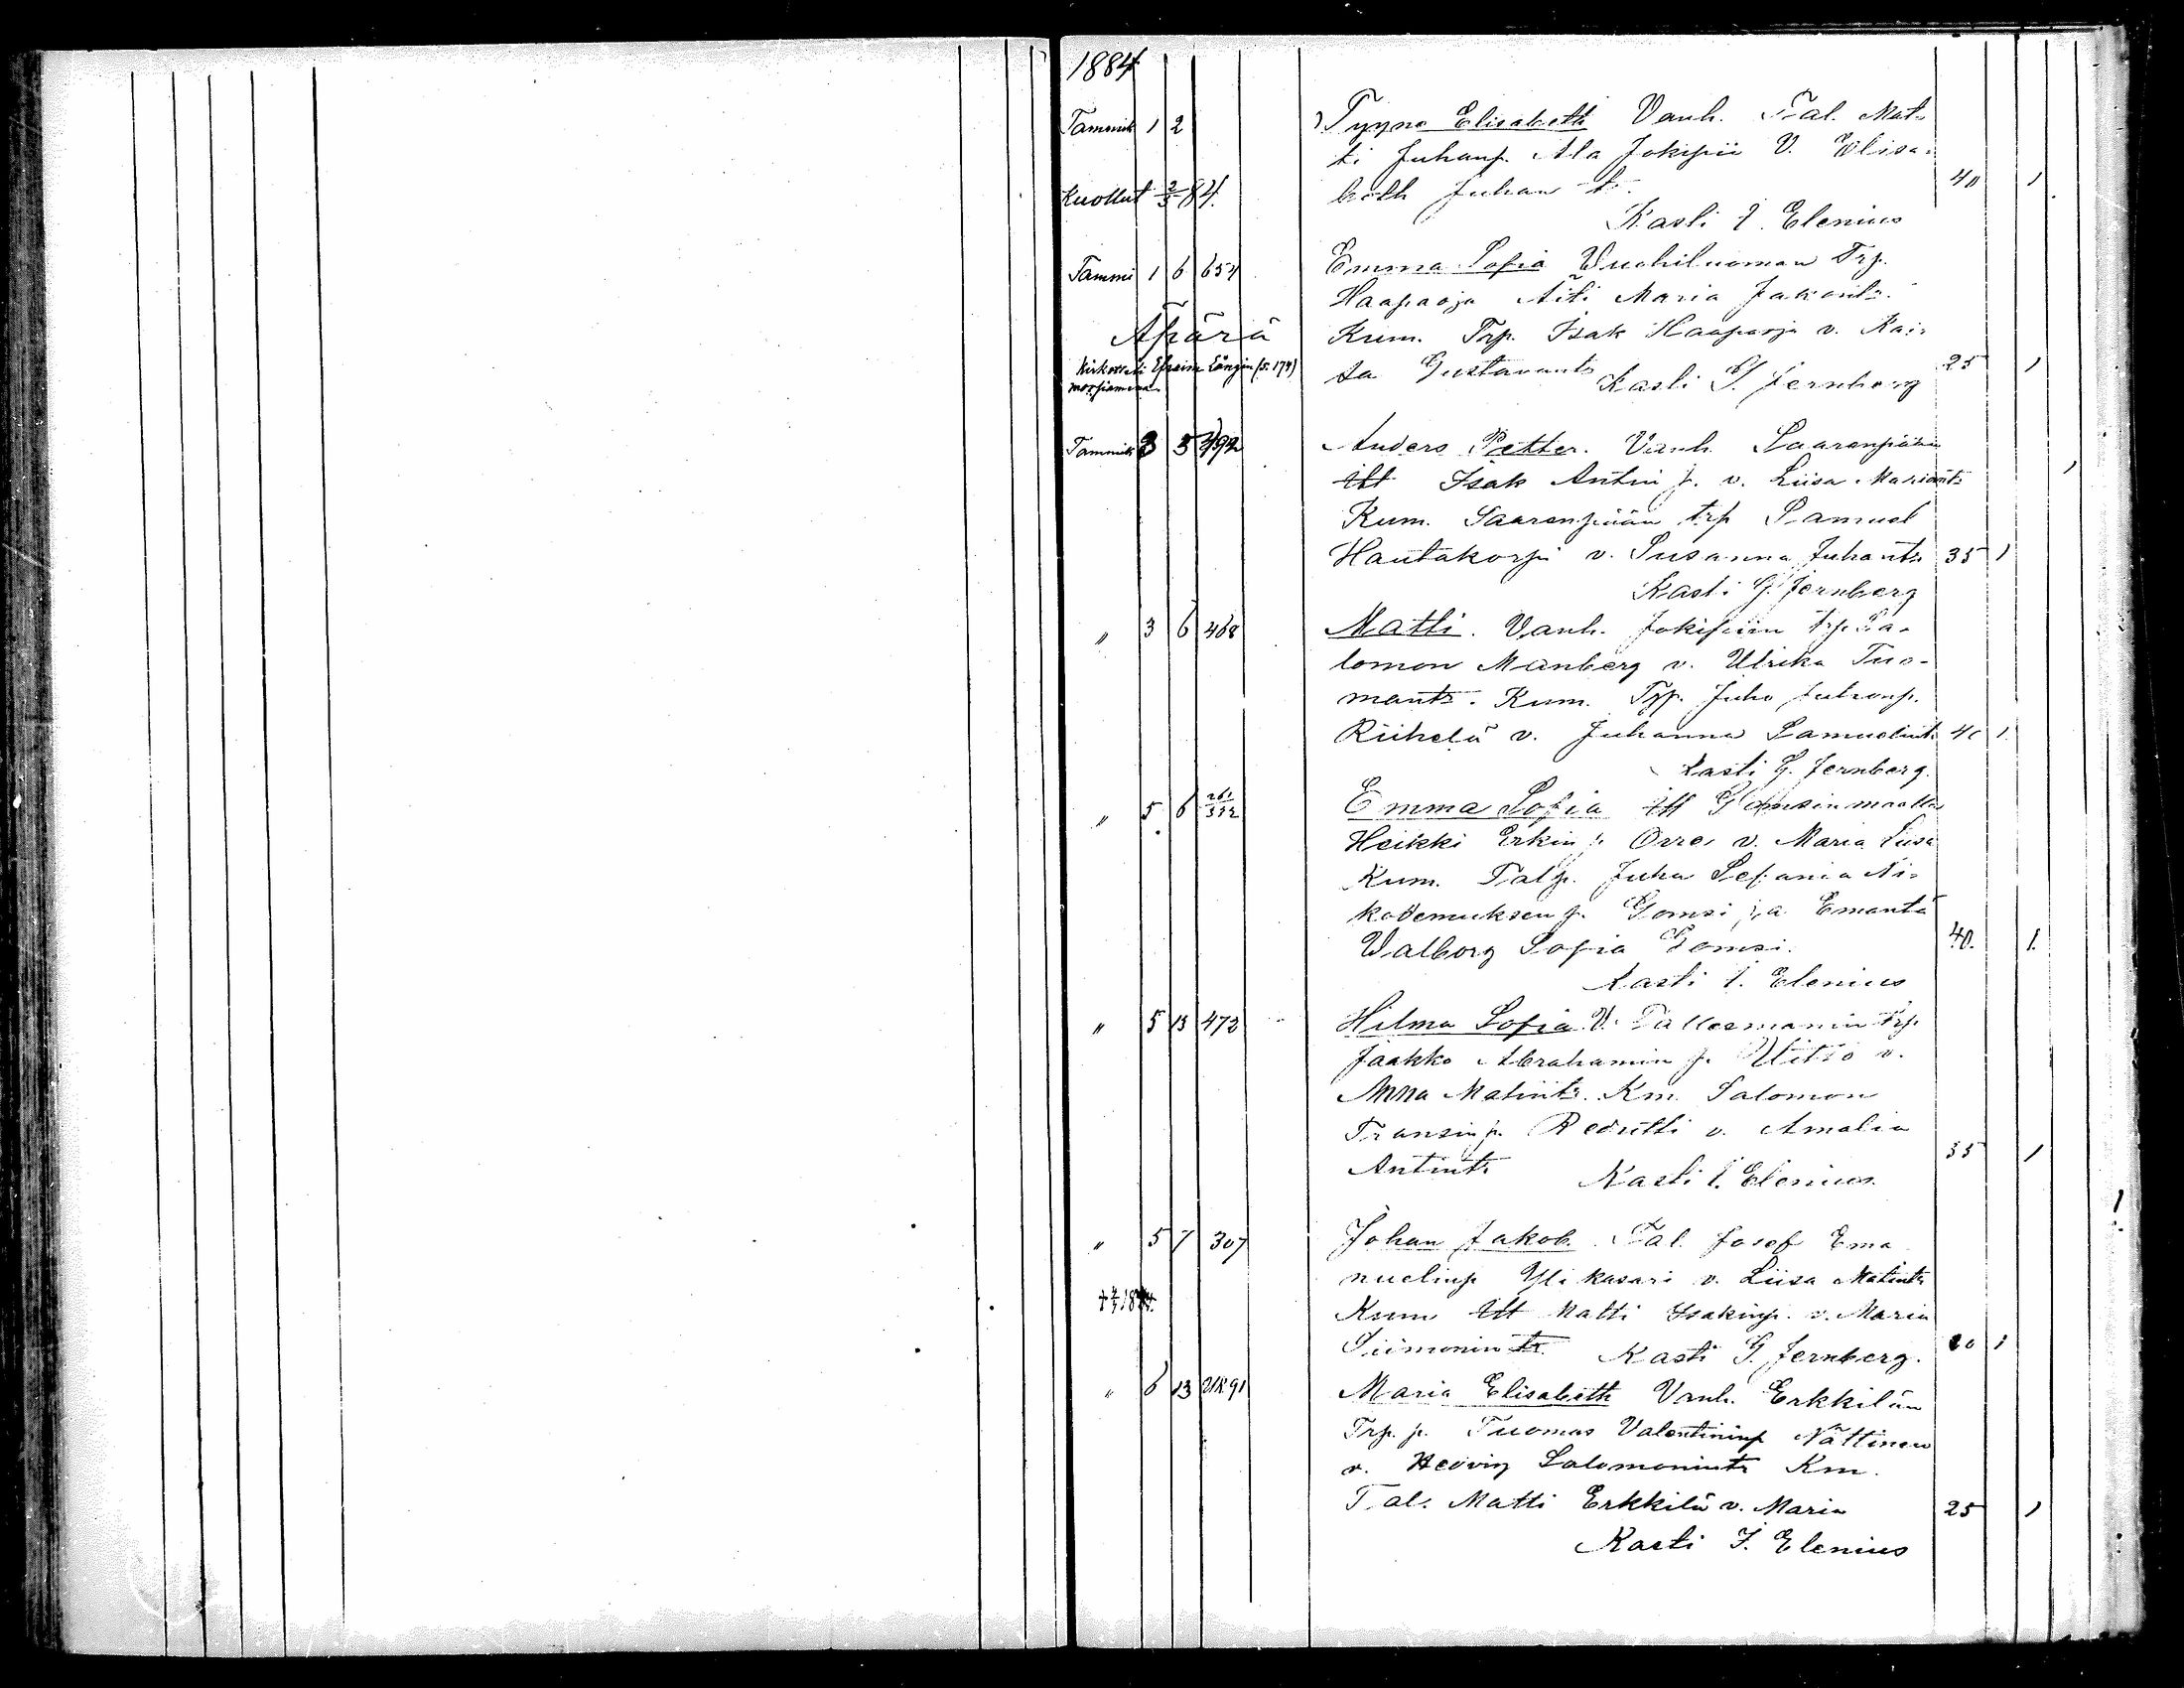 1884
Tammik 1 2 Tyyne Elisabeth Vanh. Tal. Mat-
ti Juhanp. Ala Jokipii V. Elisa-
Kuollut 2/3 84. beth Juhan t. 40 1
Kasti I. Elenius
Tammi 1 6 657 Emma Sofia Vuohiluoman Trp.
Haapaoja Äiti Maria Jakontr.
Äpärä Kum. Trp. Isak Haapaoja v. Kai-
Kirkotteli Efraim Längin (s. 174) sa Gustavantr 25 1
morsiamena Kasti G. Jernberg
Tammik 3 5 492 Anders Petter. Vanh. Saarenpään
itt Isak Antin p. v. Liisa Mariantr
Kum. Saarenpään trp Samuel
Hautakorpi v. Susanna Juhantr 35 1
Kasti G. Jernberg
" 3 6 468 Matti. Vanh. Jokipiin trp. Sa-
lomon Manberg v. Ulrika Tuo-
mantr. Kum. Trp. Juho Juhanp.
Riihelä v. Juhanna Samuelintr 40 1
Kasti G. Jernberg.
" 5 6 261/332 Emma Sofia itt maalla
Heikki Erkin p. Orre v. Maria Liisa
Kum. Talp. Juha Sefania Ni-
kodemuksen p. ja Emäntä
Walborg Sofia 40. 1.
Kasti I. Elenius
" 5 13 473 Hilma Sofia. V. Trp.
Jaakko Abrahamin p. v.
Anna Matintr. Km. Salomon
Fransin p. Redutti v. Amalia
Antintr 35 1
Kasti I. Elenius.
" 5 7 307 Johan Jakob. Tal. Josef Ema
nuelinp Yli kasari v. Liisa Matintr
Kum itt Matti Isakinp. v. Maria
Siimonin tr. 20 1
Kasti G. Jernberg.
" 6 13 91 Maria Elisabeth Vanh. Erkkilän
Trp. p. Tuomas Valentininp Nättinen
v. Hedvig Salomonintr Km.
Tal. Matti Erkkilä v. Maria 25 1
Kasti I. Elenius